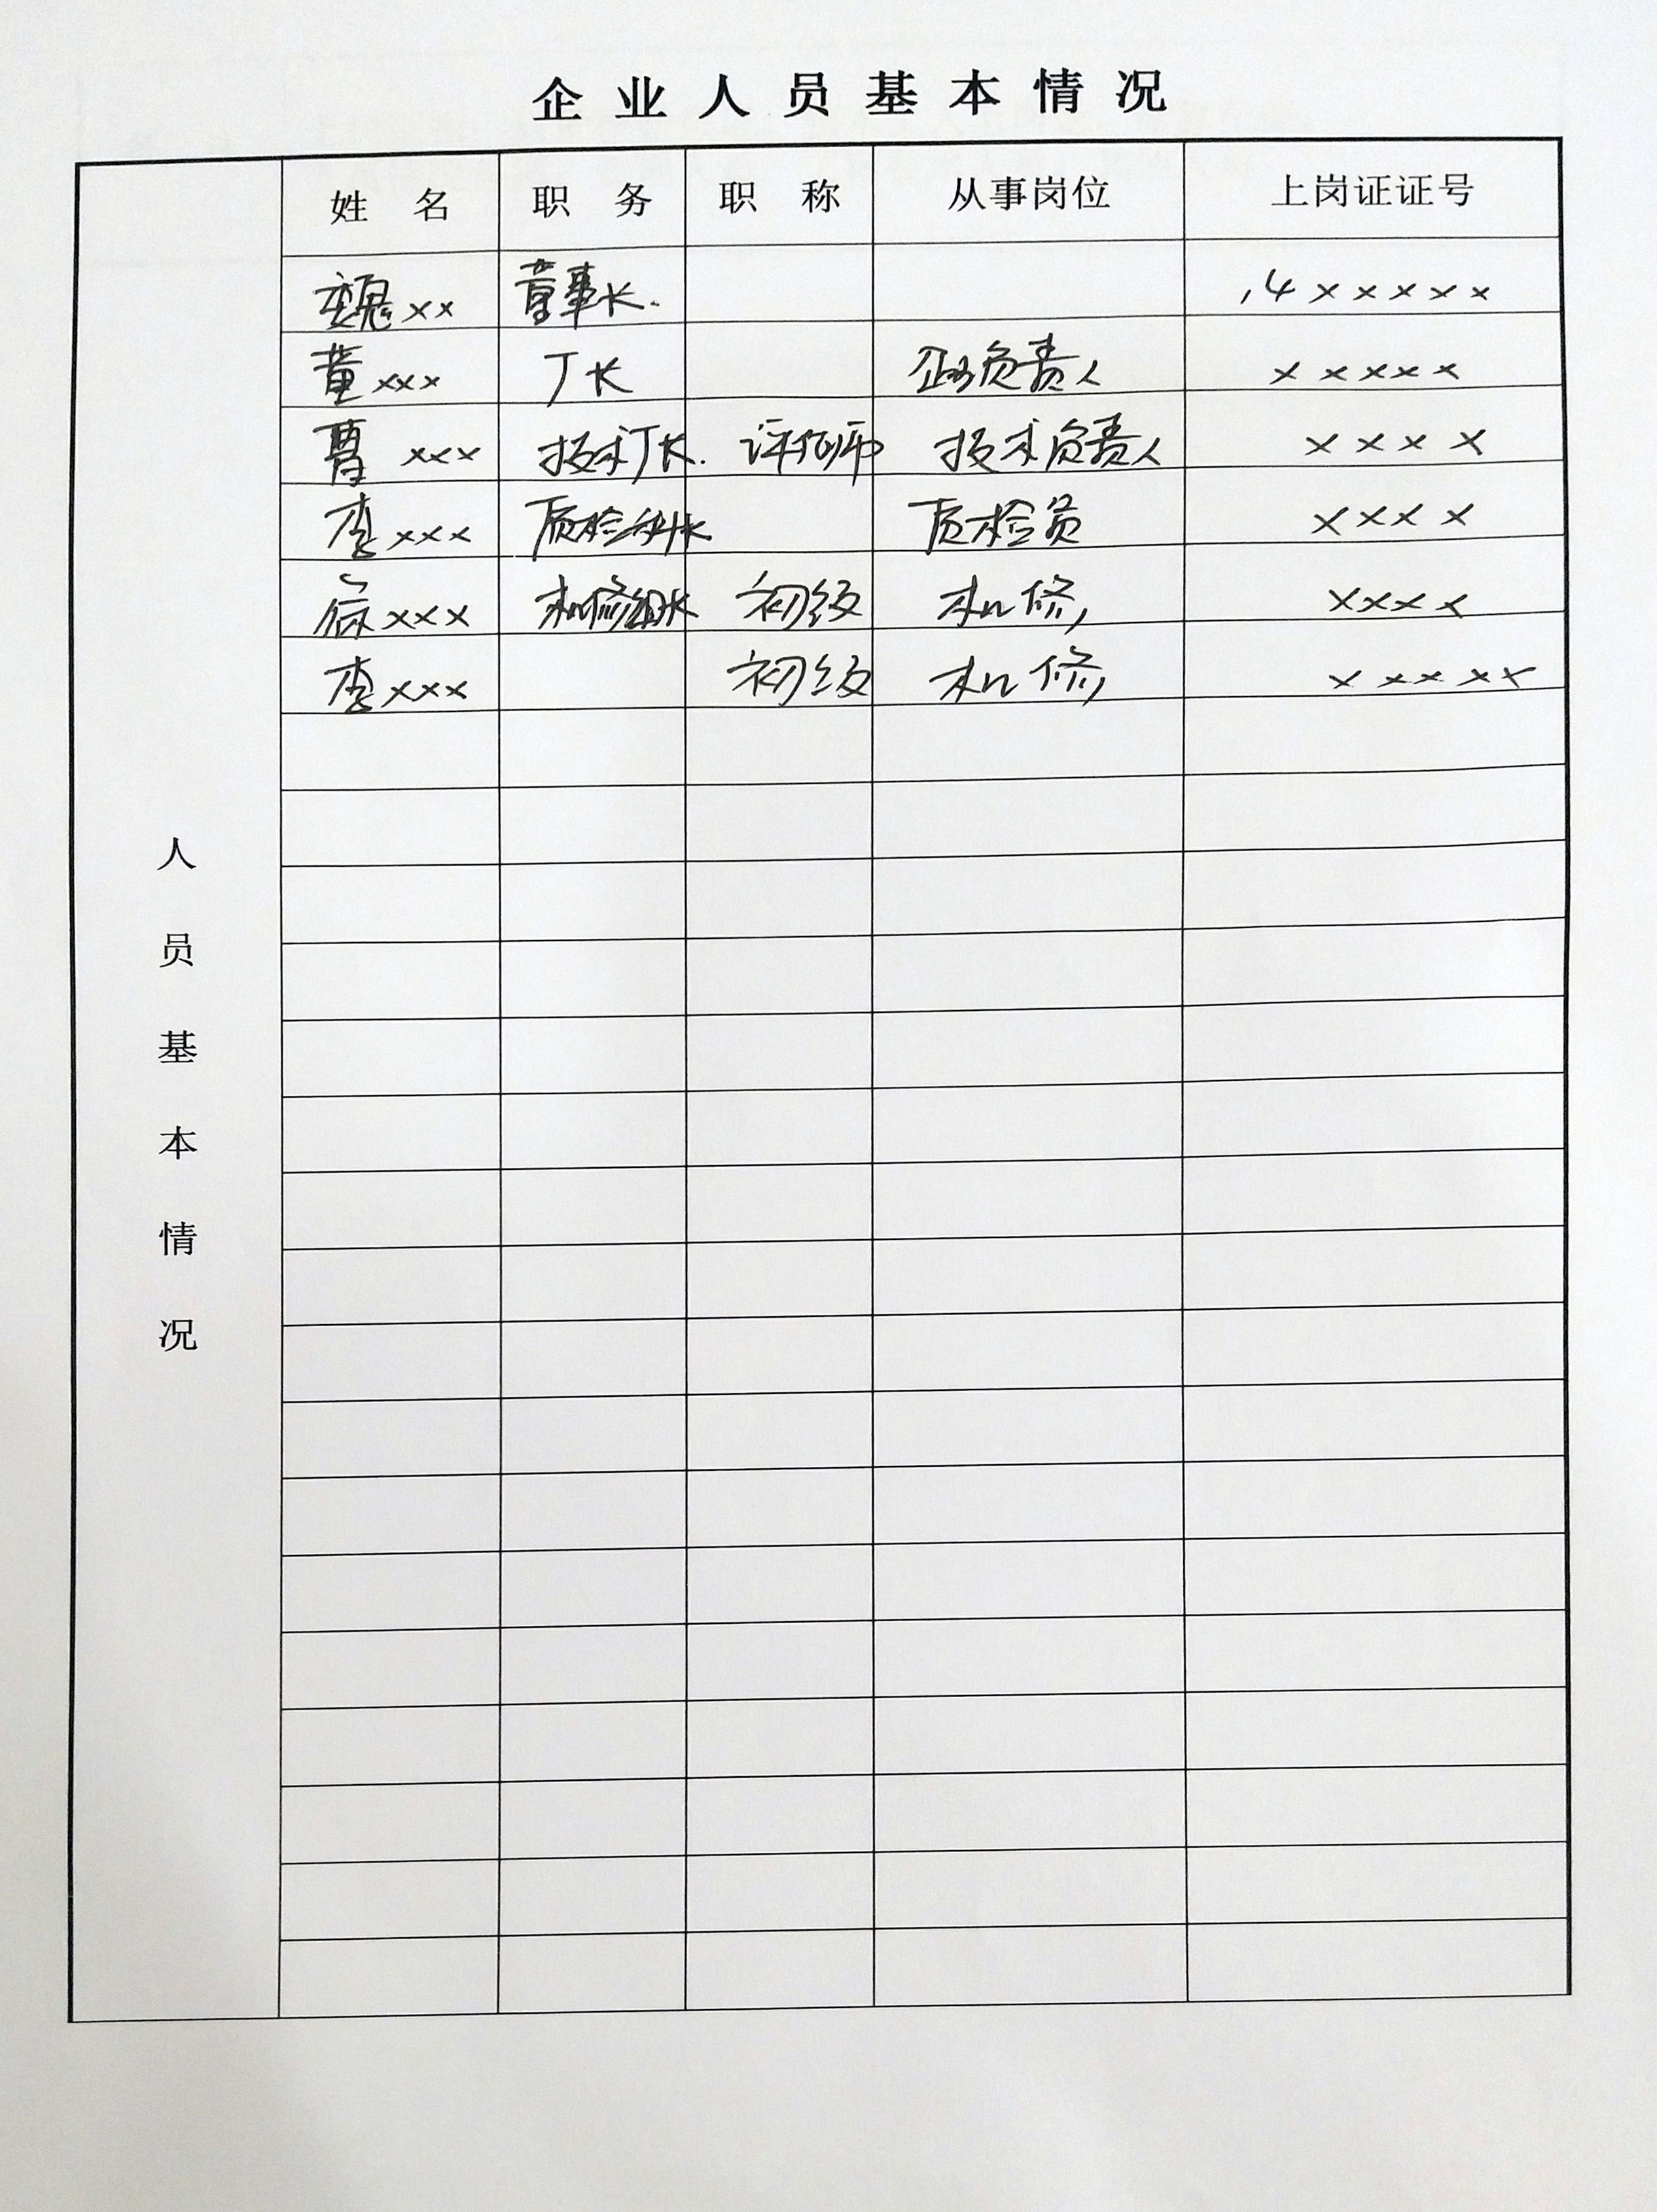 企业人员基本情况
姓名 职务 职称 从事岗位 上岗证证号
魏×× 董事长. ,4×××××
董××× 厂长 企业负责人 ×××××
曹××× 技术厂长. 评估师 技术负责人 ××××
李××× 质检科长 质检员 ××××
××× 机修组长 初级 机修 ××××
李××× 初级 机修 ×××××
人员基本情况